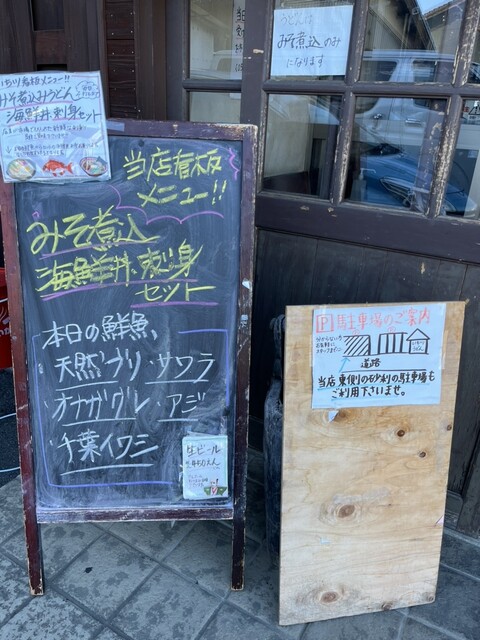 うどんは
みそ煮込のみ
になります
みそ煮込みうどん
海鮮丼、刺身セット
当店看板
メニュー!!
みそ煮込
海鮮丼、刺身
セット
本日の鮮魚、
天然ブリ・サワラ
オナガグレ・アジ
千葉イワシ
生ビール
P 駐車場のご案内
道路
当店東側の砂利の駐車場も
ご利用下さいませ。